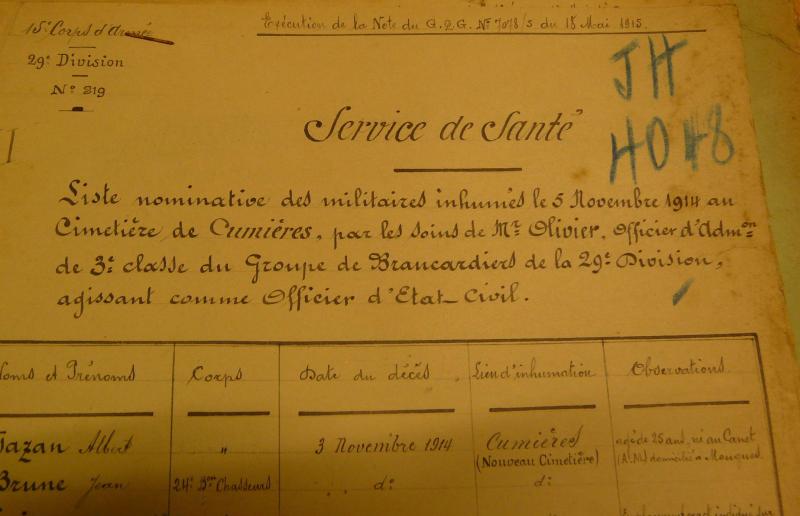 15e Corps d'Armée
29e Division
No 219
Exécution de la Note du G.Q.G. No 7078/S du 18 Mai 1915.
JH
4048
Service de Santé
Liste nominative des militaires inhumés le 5 Novembre 1914 au
Cimetière de Cumières, par les soins de Mr Olivier, Officier d'Admon
de 3e classe du Groupe de Brancardiers de la 29e Division,
agissant comme Officier d'Etat-Civil.
Noms et Prénoms Corps Date du décès Lieu d'inhumation Observations
Albert " 3 Novembre 1914 Cumières agé de 25 ans, né au Canet
(Nouveau Cimetière) domicilié à
Brune Jean 24e Bon Chasseurs do do